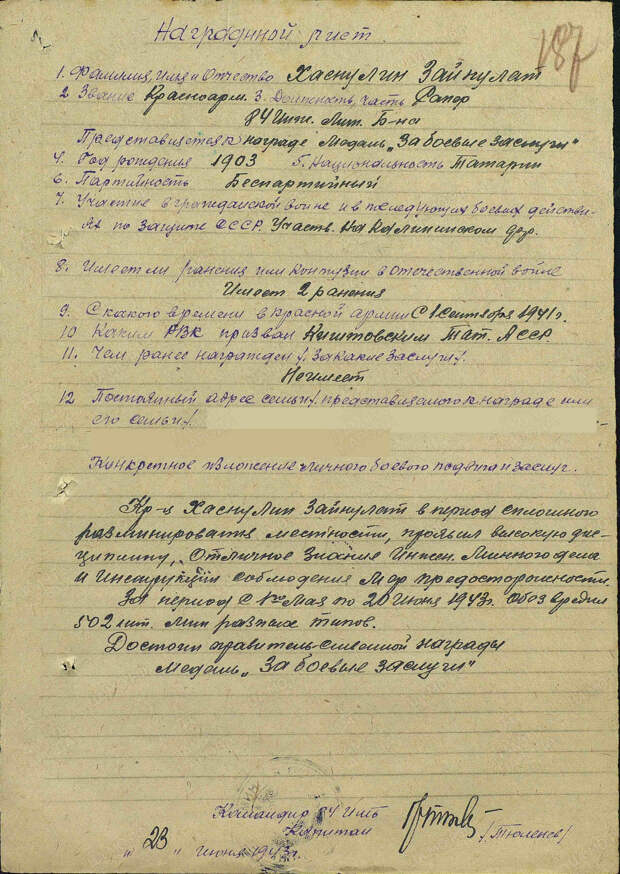 Наградной лист.
187
1. Фамилия, Имя и Отчество Хаснулин Зайнулат
2 Звание Красноарм. 3. Должность, часть Сапер
84 Инж. Мин. Б-на
Представляется к награде Медаль „За боевые заслуги"
4. Год рождения 1903 5. Национальность Татарин
6. Партийность Беспартийный
7. Участие в гражданской войне и в последующих боевых действи-
ях по защите СССР. Участв. на Калининском
8. Имеет ли ранения или контузии в отечественной войне
Имеет 2 ранения
9. С какого времени в красной армии С 1 сентября 1941 г.
10 Каким РВК призван Тат. АССР.
11. Чем ранее награжден /за какие заслуги/.
Не имеет
12 Постоянный адрес семьи/. представляемого к награде или
его семьи/.
Конкретное изложение личного боевого подвига и заслуг.
Кр-ц Хаснулин Зайнулат в период сплошного
разминирования местности, проявил высокую дис-
циплину, отличное знание Инжен. Минного дела
и Инструкций соблюдение мер предосторожности.
За период с Мая по 20 Июня 1943 г. обезвредил
502 шт. мин разных типов.
Достоин правительственной награды
Медаль „За боевые заслуги"
Командир 84 ИМБ
Капитан /Тюленев/
„ 23 " июня 1943 г.